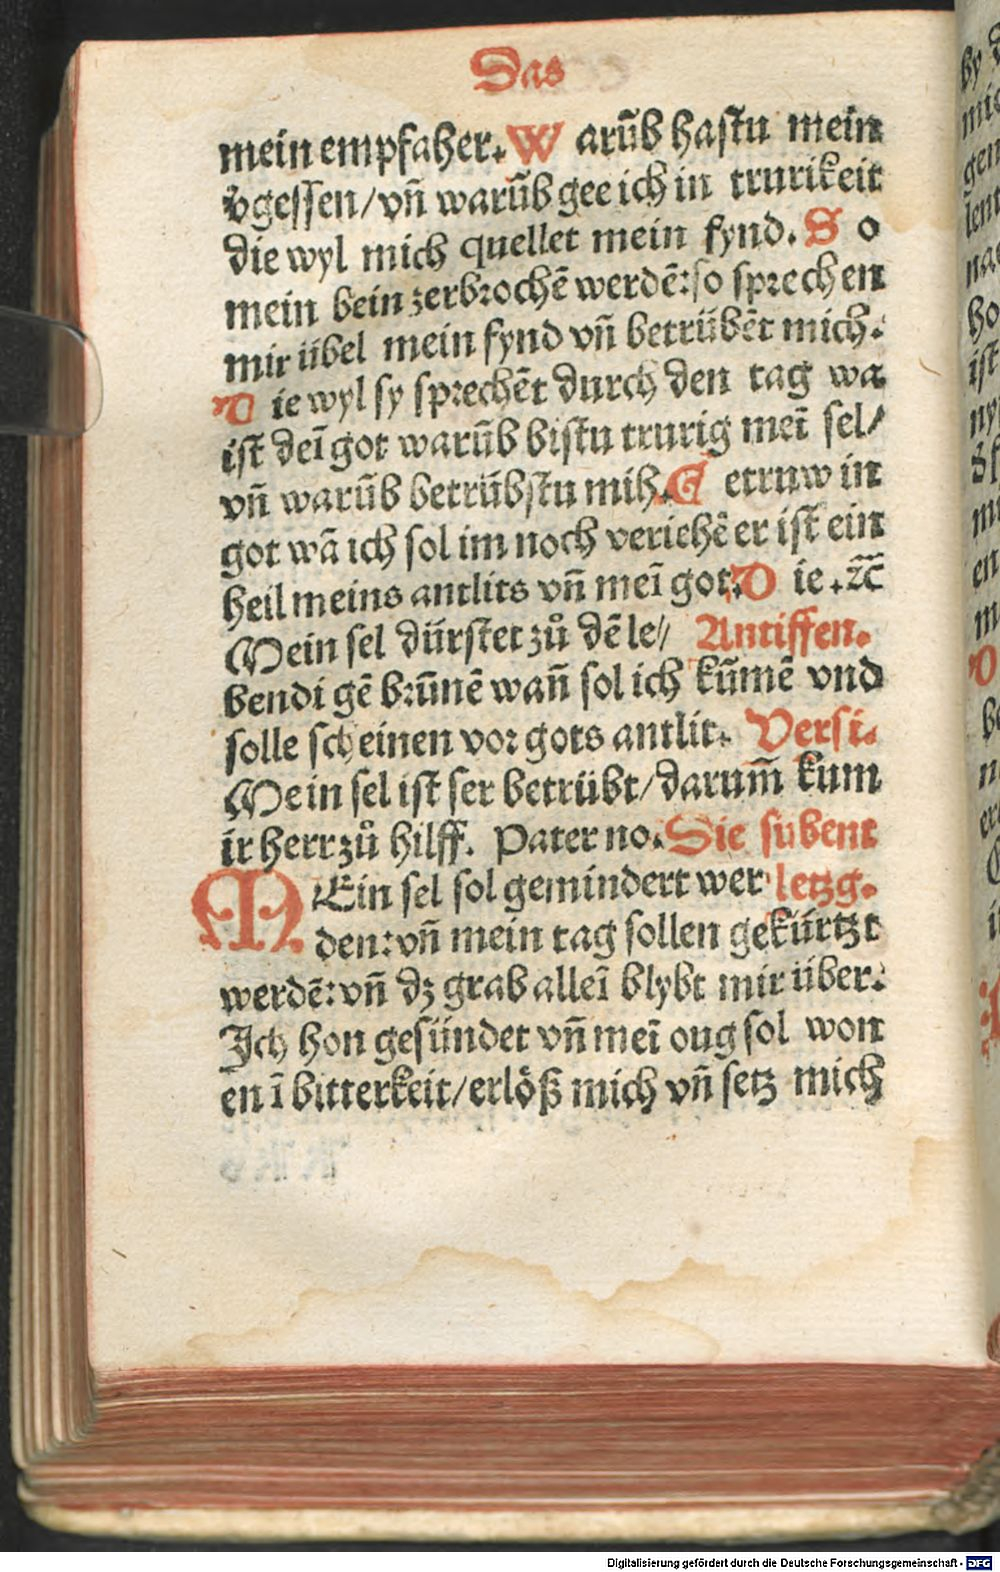 Das
mein empfaher. W arūb hastu mein
v̄gessen/vn̄ warūb gee ich in trurikeit
die wyl mich quellet mein fynd. S o
mein bein zerbrochē werdē: so sprechen
mir übel mein fynd vn̄ betrübēt mich.
D ie wyl sy sprechēt durch den tag wa
ist deī got warūb bistu trurig meī sel/
vn̄ warūb betrübstu mih. G etruw in
got wā ich sol im noch veriehē er ist ein
heil meins antlits vn̄ meī got. D ie .ꝛc̄
Mein sel dürstet zů dē le// Antiffen.
bendi gē brūnē wan̄ sol ich kūmē vnd
solle scheinen vor gots antlit. Versi.
Mein sel ist ser betrübt/darum̄ kum
ir herr zů hilff. Pater no. Die subent
MEin sel sol gemindert wer letzg.
den: vn̄ mein tag sollen gekürtzt
werdē: vn̄ dz grab alleī blybt mir über.
Ich hon gesündet vn̄ meī oug sol won
en ī bitterkeit/erlöß mich vn̄ setz mich
Digitalisierung gefördert durch die Deutsche Forschungsgemeinschaft - DFG